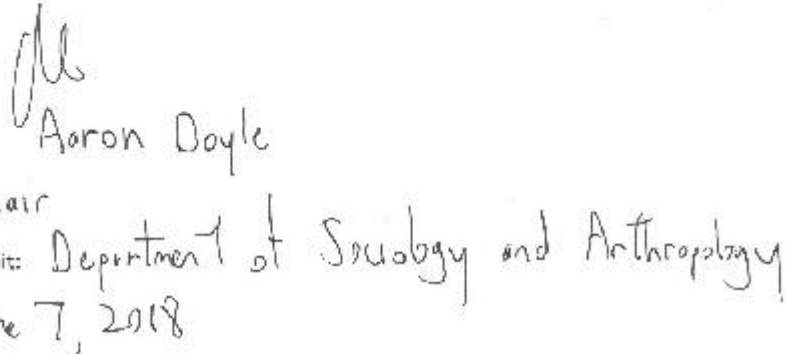 Aaron Doyle
air
it: Department of Sociology and Anthropology
ne 7, 2018